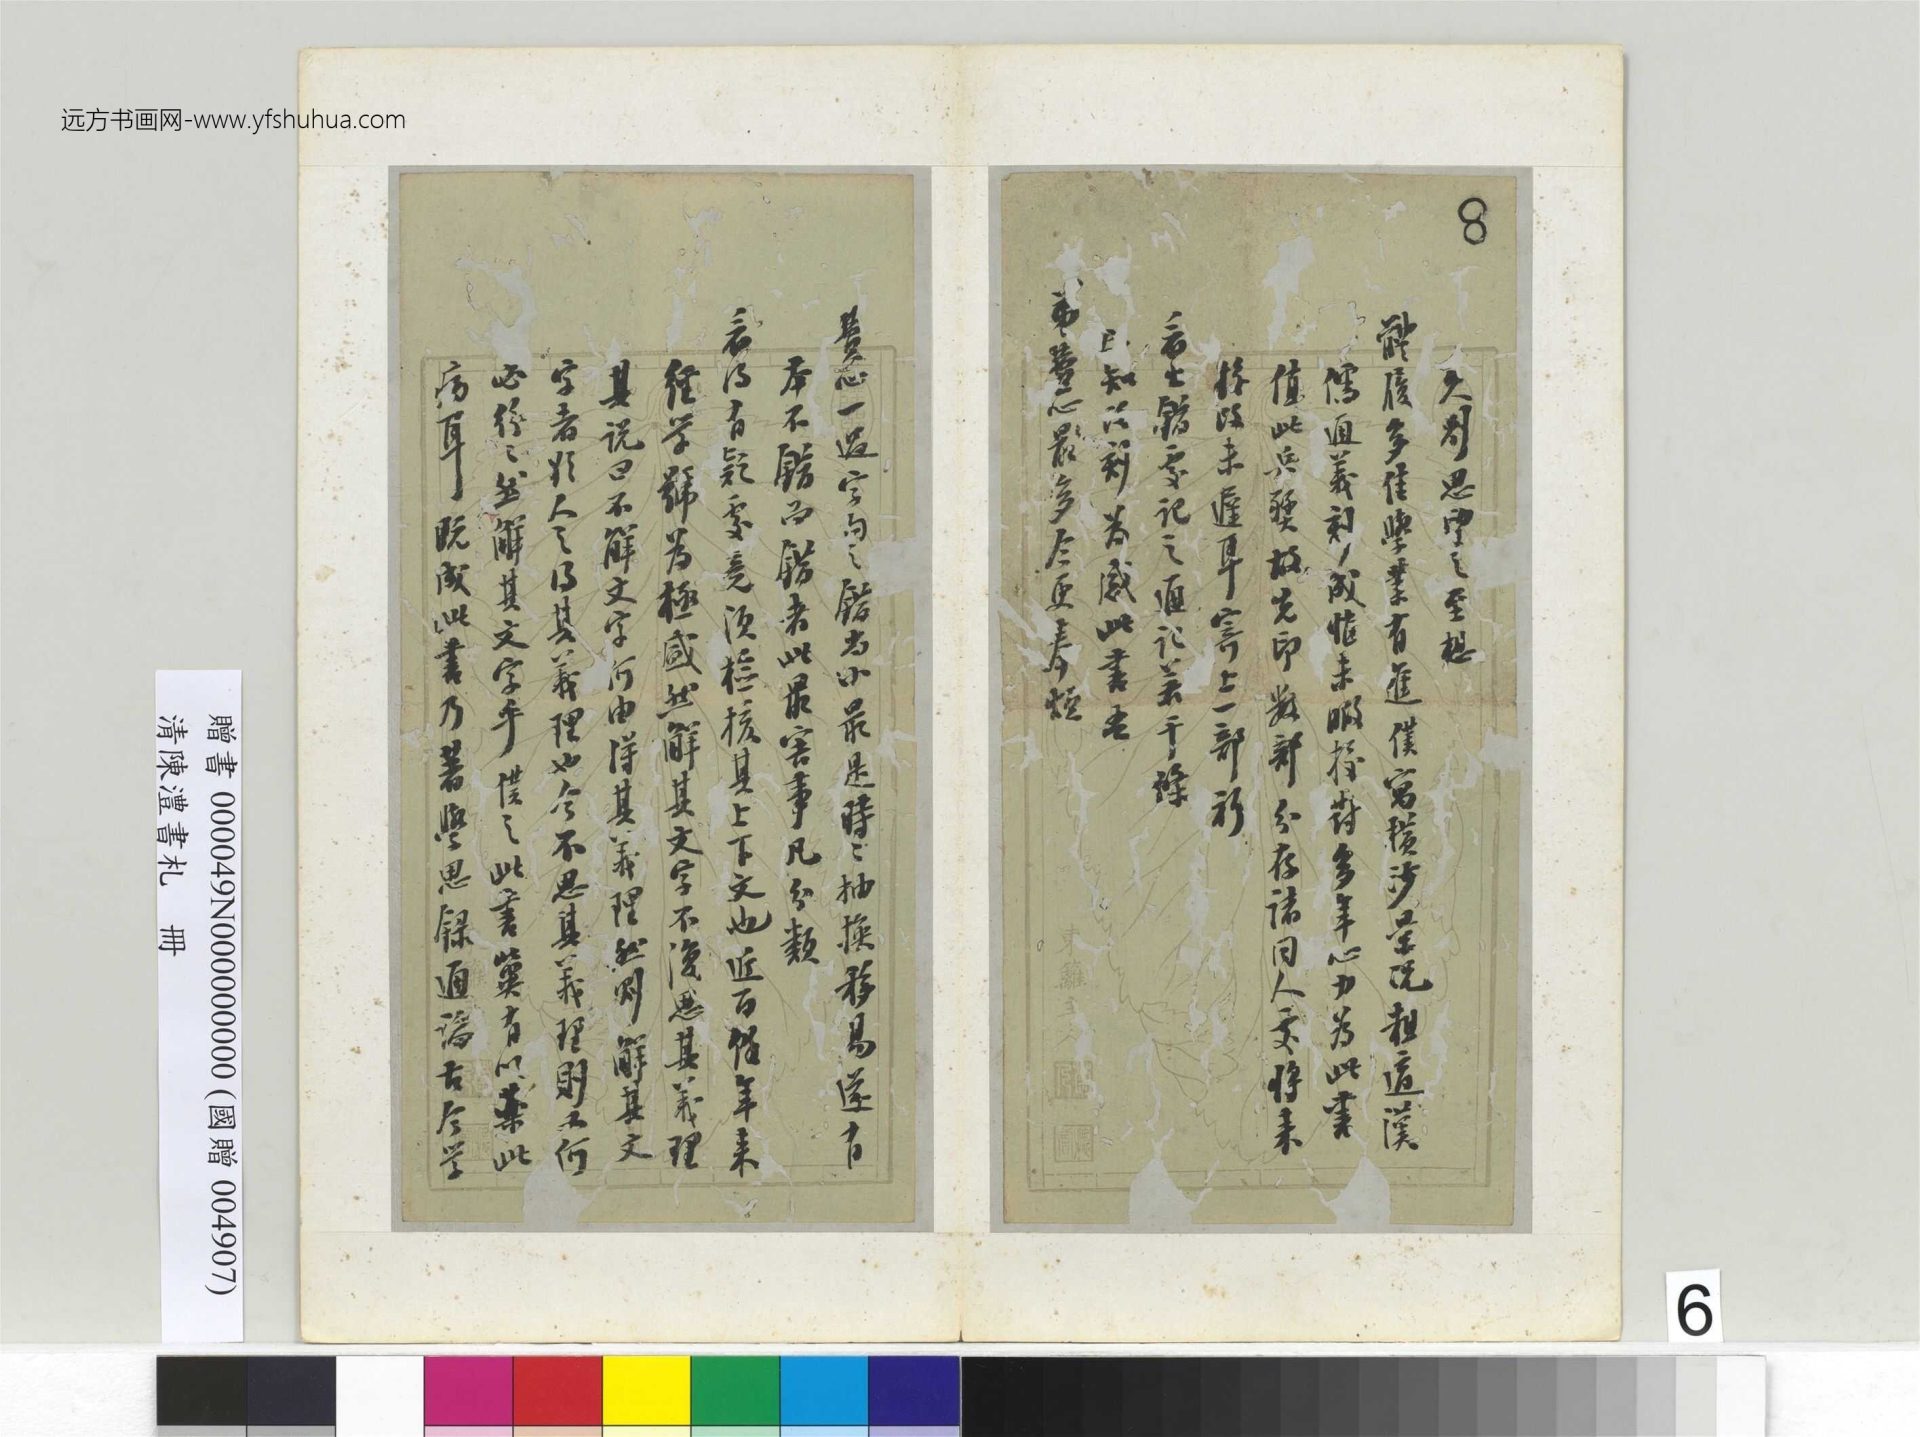 远方书画网-www.yfshuhua.com
8
久閉思望之至想
體履多佳學業有進僕寓橫沙景況粗適漢
儒通義刻成惟未暇校對多年心力為此書
值此兵燹故先印數部分存諸同人處將來
修改未遲耳寄上一部祈
看出錯處記之通記若干條
示知以刻為感此書吾
弟費心最多今更奉煩
費心一過字句之錯尚小最是時時抽換移易遂有
本不錯而錯者此最害事凡分類
看得有疑處竟須檢核其上下文也近百餘年來
經學號為極盛然解其文字不復思其義理
其說曰不解文字何由得其義理然則解其文
字者欲人之得其義理也今不思其義理則又何
必紛紛然解其文字乎僕之此書冀有以藥此
病耳既成此書乃著學思錄通論古今學
東籬主人
贈書 000049N000000000 (國贈 004907)
清陳澧書札 冊
6